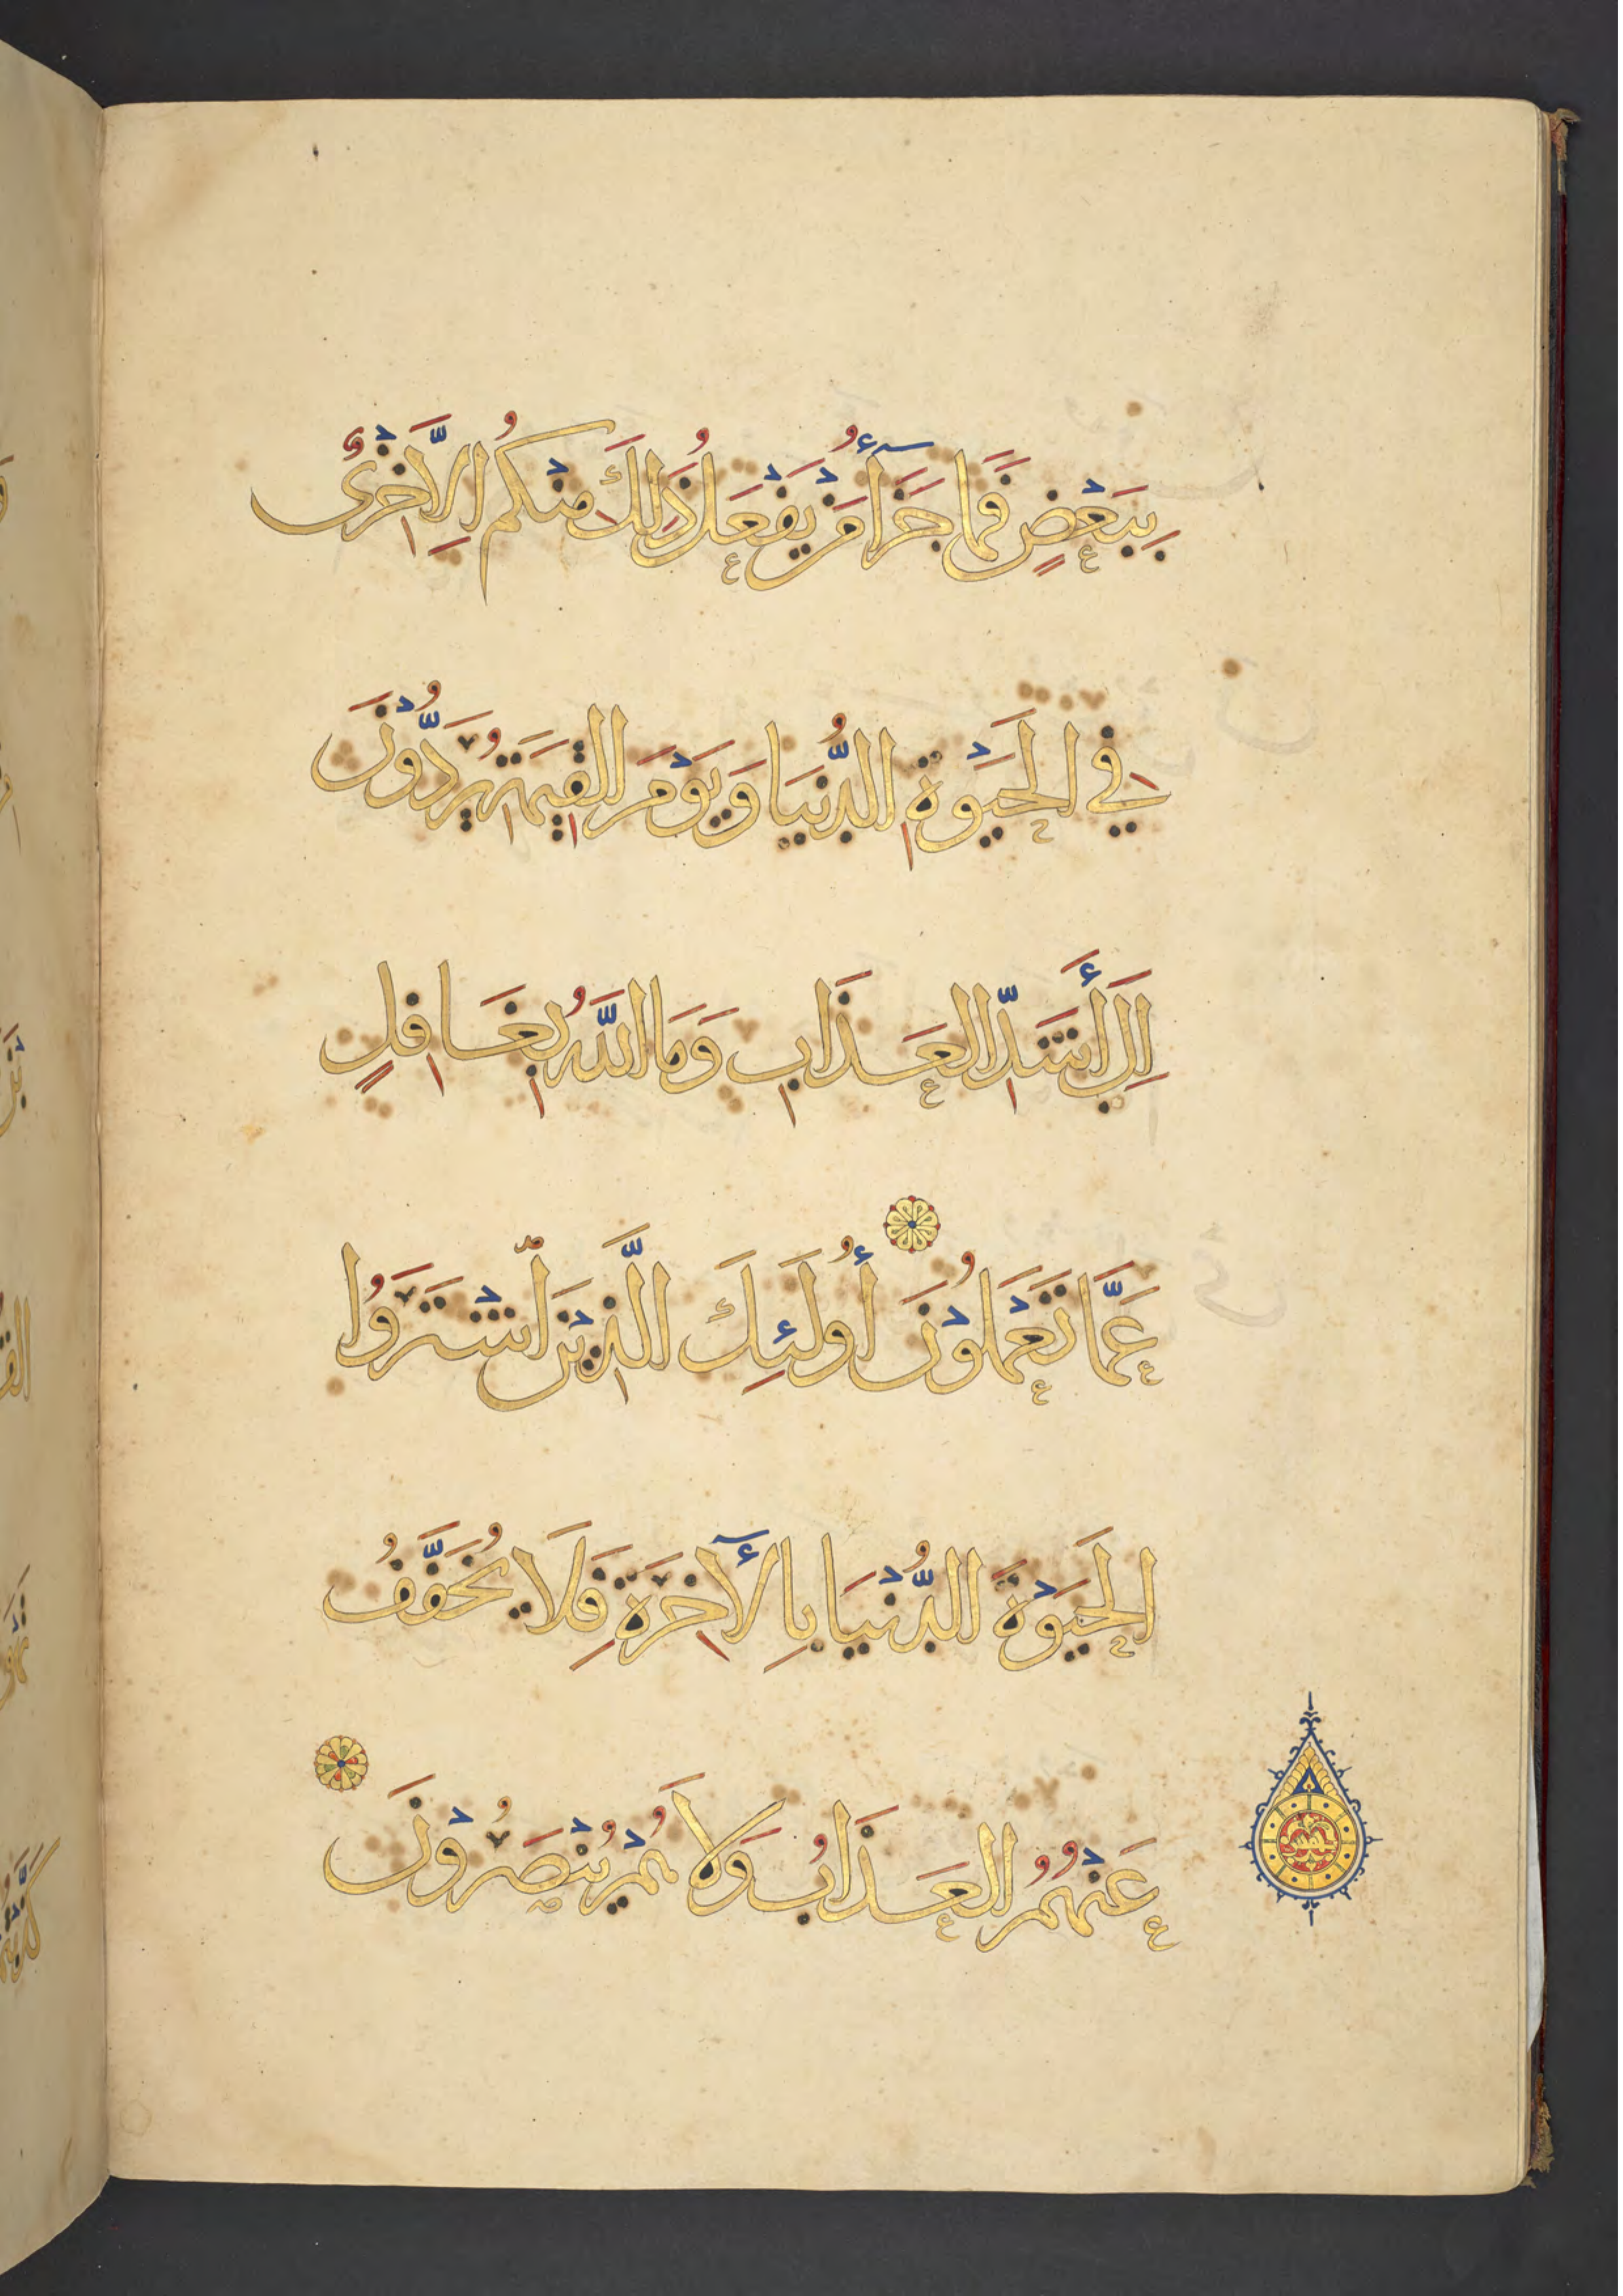 بِبَعْضٍ فَمَا جَزَآءُ مَنْ يَفْعَلُ ذَٰلِكَ مِنْكُمْ اِلَّا خِزْىٌ
فِي الْحَيَوةِ الدُّنْيَا وَيَوْمَ الْقِيَمَةِ يُرَدُّوْنَ
اِلَى أَشَدِّ الْعَذَابِ وَمَا اللَّهُ بِغَافِلٍ
عَمَّا تَعْمَلُوْنَ أُولَئِكَ الَّذِيْنَ اشْتَرَوُا
الْحَيَوةَ الدُّنْيَا بِالْآخِرَةِ فَلَا يُخَفَّفُ
عَنْهُمُ الْعَذَابُ وَلَا هُمْ يُنْصَرُوْنَ